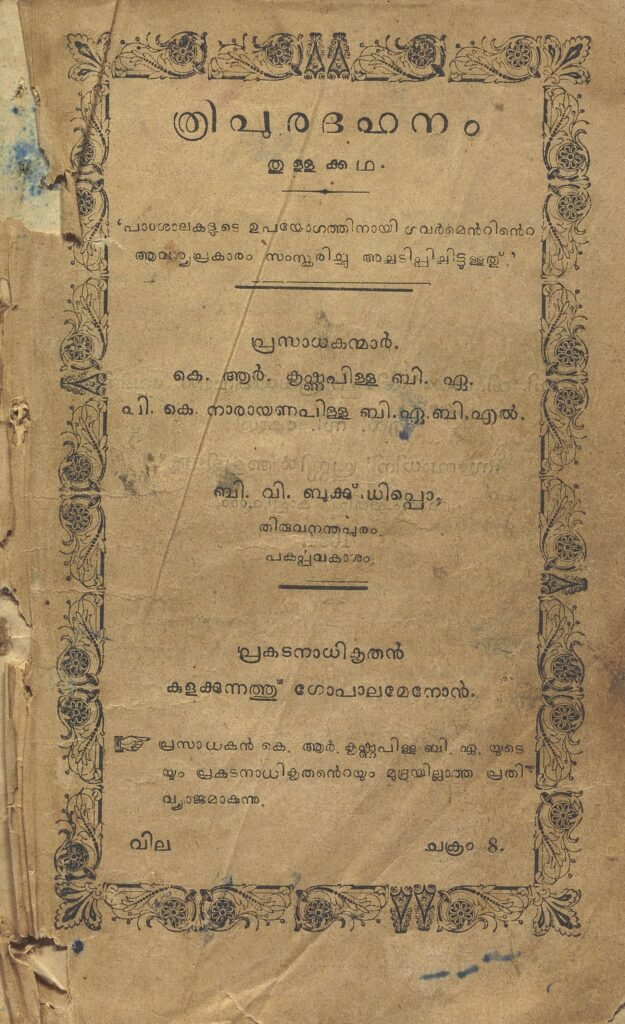 ത്രിപുരദഹനം
തുള്ളക്കഥ.
'പാഠശാലകളുടെ ഉപയോഗത്തിനായി ഗവർമെൻറിൻെറ
ആവശ്യപ്രകാരം സംസ്കരിച്ചു അച്ചടിപ്പിച്ചിട്ടുള്ളതു്.'
പ്രസാധകന്മാർ.
കെ. ആർ. കൃഷ്ണപിള്ള ബി. ഏ.
പി. കെ നാരായണപിള്ള ബി.ഏ.ബി.എൽ.
ബി. വി. ബുക്കു് ഡിപ്പൊ,
തിരുവനന്തപുരം.
പകർപ്പവകാശം.
പ്രകടനാധികൃതൻ
കുളക്കുന്നത്തു് ഗോപാലമേനോൻ.
☞ പ്രസാധകൻ കെ. ആർ. കൃഷ്ണപിള്ള ബി. ഏ. യുടെ
യും പ്രകടനാധികൃതൻെറയും മുദ്രയില്ലാത്ത പ്രതി
വ്യാജമാകുന്നു.
വില ചക്രം 8.